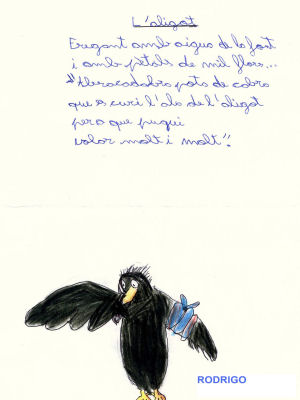 L'aligot
Eregant amb aigua de la font
i amb pètals de mil flors...
"Abracadabra pota de cabra
que es curi l'ala de l'aligot
pero que pugui
volar molt i molt".
RODRIGO